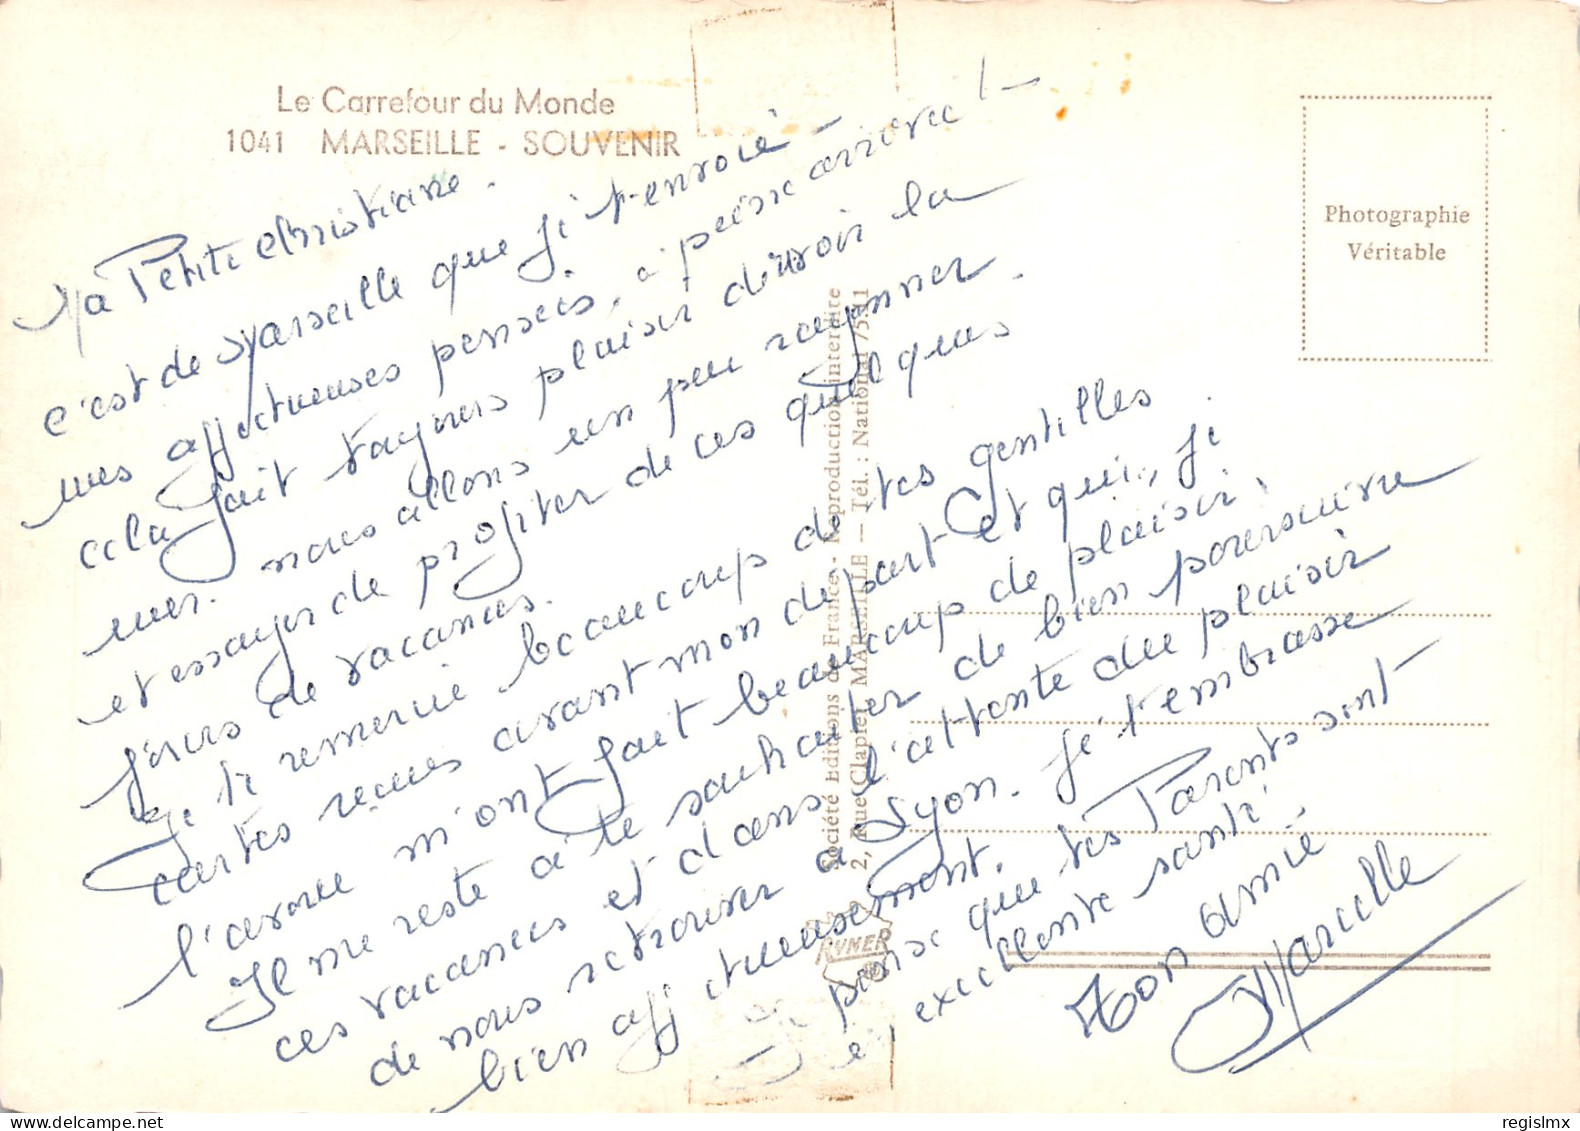 Le Carrefour du Monde
1041 MARSEILLE - SOUVENIR
Photographie
Véritable
Société Editions de France - Reproduction interdite
2, Rue Clapier, MARSEILLE — Tél. : National 75.11
RYNER
Ma Petite Christiane.
c'est de Marseille que je t'envoie
mes affectueuses pensées, à peine arrivée!
cela fait toujours plaisir de revoir la
mer. nous allons un peu rayonner.
et essayer de profiter de ces quelques
jours de vacances.
Je te remercie beaucoup de tes gentilles
cartes reçues avant mon départ et qui, je
l'avoue m'ont fait beaucoup de plaisir,
Il me reste à te souhaiter de bien poursuivre
ces vacances et dans l'attente du plaisir
de nous retrouver à Lyon. Je t'embrasse
bien affectueusement.
Je pense que tes Parents sont
en excellente santé.
Ton amie
Marcelle
regislmx